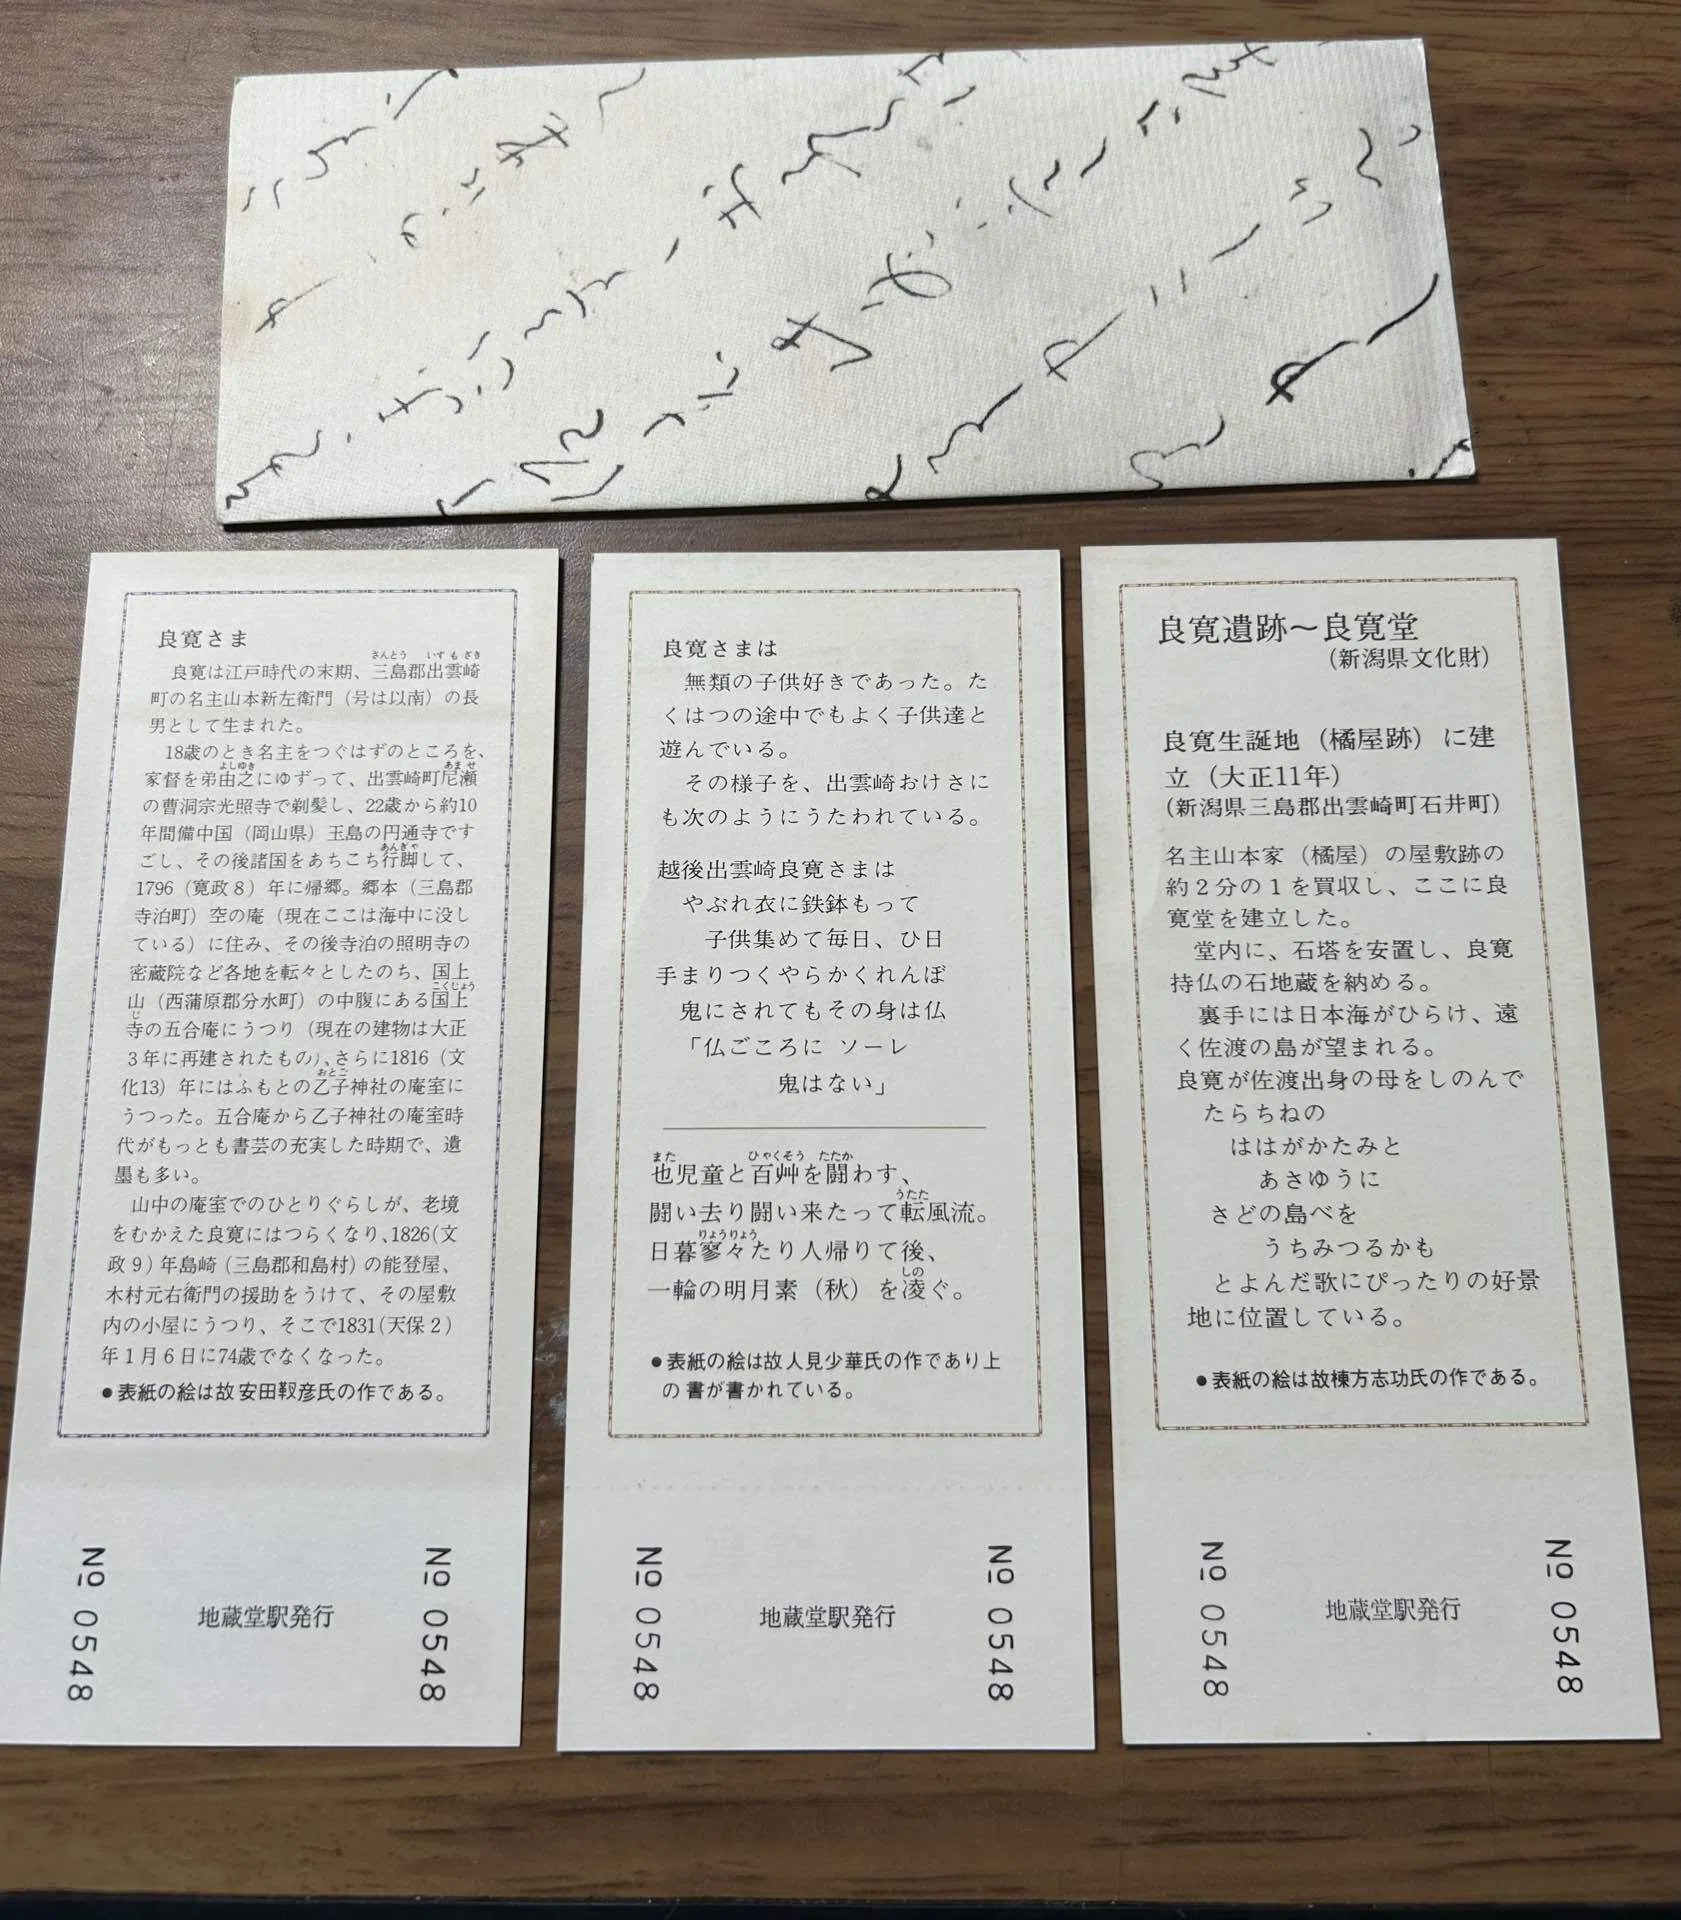 良寛さま
良寛は江戸時代の末期、三島郡出雲崎
町の名主山本新左衛門（号は以南）の長
男として生まれた。
18歳のとき名主をつぐはずのところを、
家督を弟由之にゆずって、出雲崎町尼瀬
の曹洞宗光照寺で剃髪し、22歳から約10
年間備中国（岡山県）玉島の円通寺です
ごし、その後諸国をあちこち行脚して、
1796（寛政８）年に帰郷。郷本（三島郡
寺泊町）空の庵（現在ここは海中に没し
ている）に住み、その後寺泊の照明寺の
密蔵院など各地を転々としたのち、国上
山（西蒲原郡分水町）の中腹にある国上
寺の五合庵にうつり（現在の建物は大正
３年に再建されたもの）、さらに1816（文
化13）年にはふもとの乙子神社の庵室に
うつった。五合庵から乙子神社の庵室時
代がもっとも書芸の充実した時期で、遺
墨も多い。
山中の庵室でのひとりぐらしが、老境
をむかえた良寛にはつらくなり、1826（文
政９）年島崎（三島郡和島村）の能登屋、
木村元右衛門の援助をうけて、その屋敷
内の小屋にうつり、そこで1831（天保２）
年１月６日に74歳でなくなった。
●表紙の絵は故安田靫彦氏の作である。
№ 0548
地蔵堂駅発行
№ 0548
良寛さまは
無類の子供好きであった。た
くはつの途中でもよく子供達と
遊んでいる。
その様子を、出雲崎おけさに
も次のようにうたわれている。
越後出雲崎良寛さまは
やぶれ衣に鉄鉢もって
子供集めて毎日、ひ日
手まりつくやらかくれんぼ
鬼にされてもその身は仏
「仏ごころに ソーレ
鬼はない」
也児童と百艸を闘わす、
闘い去り闘い来たって転風流。
日暮寥々たり人帰りて後、
一輪の明月素（秋）を凌ぐ。
●表紙の絵は故人見少華氏の作であり上
の書が書かれている。
№ 0548
地蔵堂駅発行
№ 0548
良寛遺跡〜良寛堂
（新潟県文化財）
良寛生誕地（橘屋跡）に建
立（大正11年）
（新潟県三島郡出雲崎町石井町）
名主山本家（橘屋）の屋敷跡の
約２分の１を買収し、ここに良
寛堂を建立した。
堂内に、石塔を安置し、良寛
持仏の石地蔵を納める。
裏手には日本海がひらけ、遠
く佐渡の島が望まれる。
良寛が佐渡出身の母をしのんで
たらちねの
ははがかたみと
あさゆうに
さどの島べを
うちみつるかも
とよんだ歌にぴったりの好景
地に位置している。
●表紙の絵は故棟方志功氏の作である。
№ 0548
地蔵堂駅発行
№ 0548